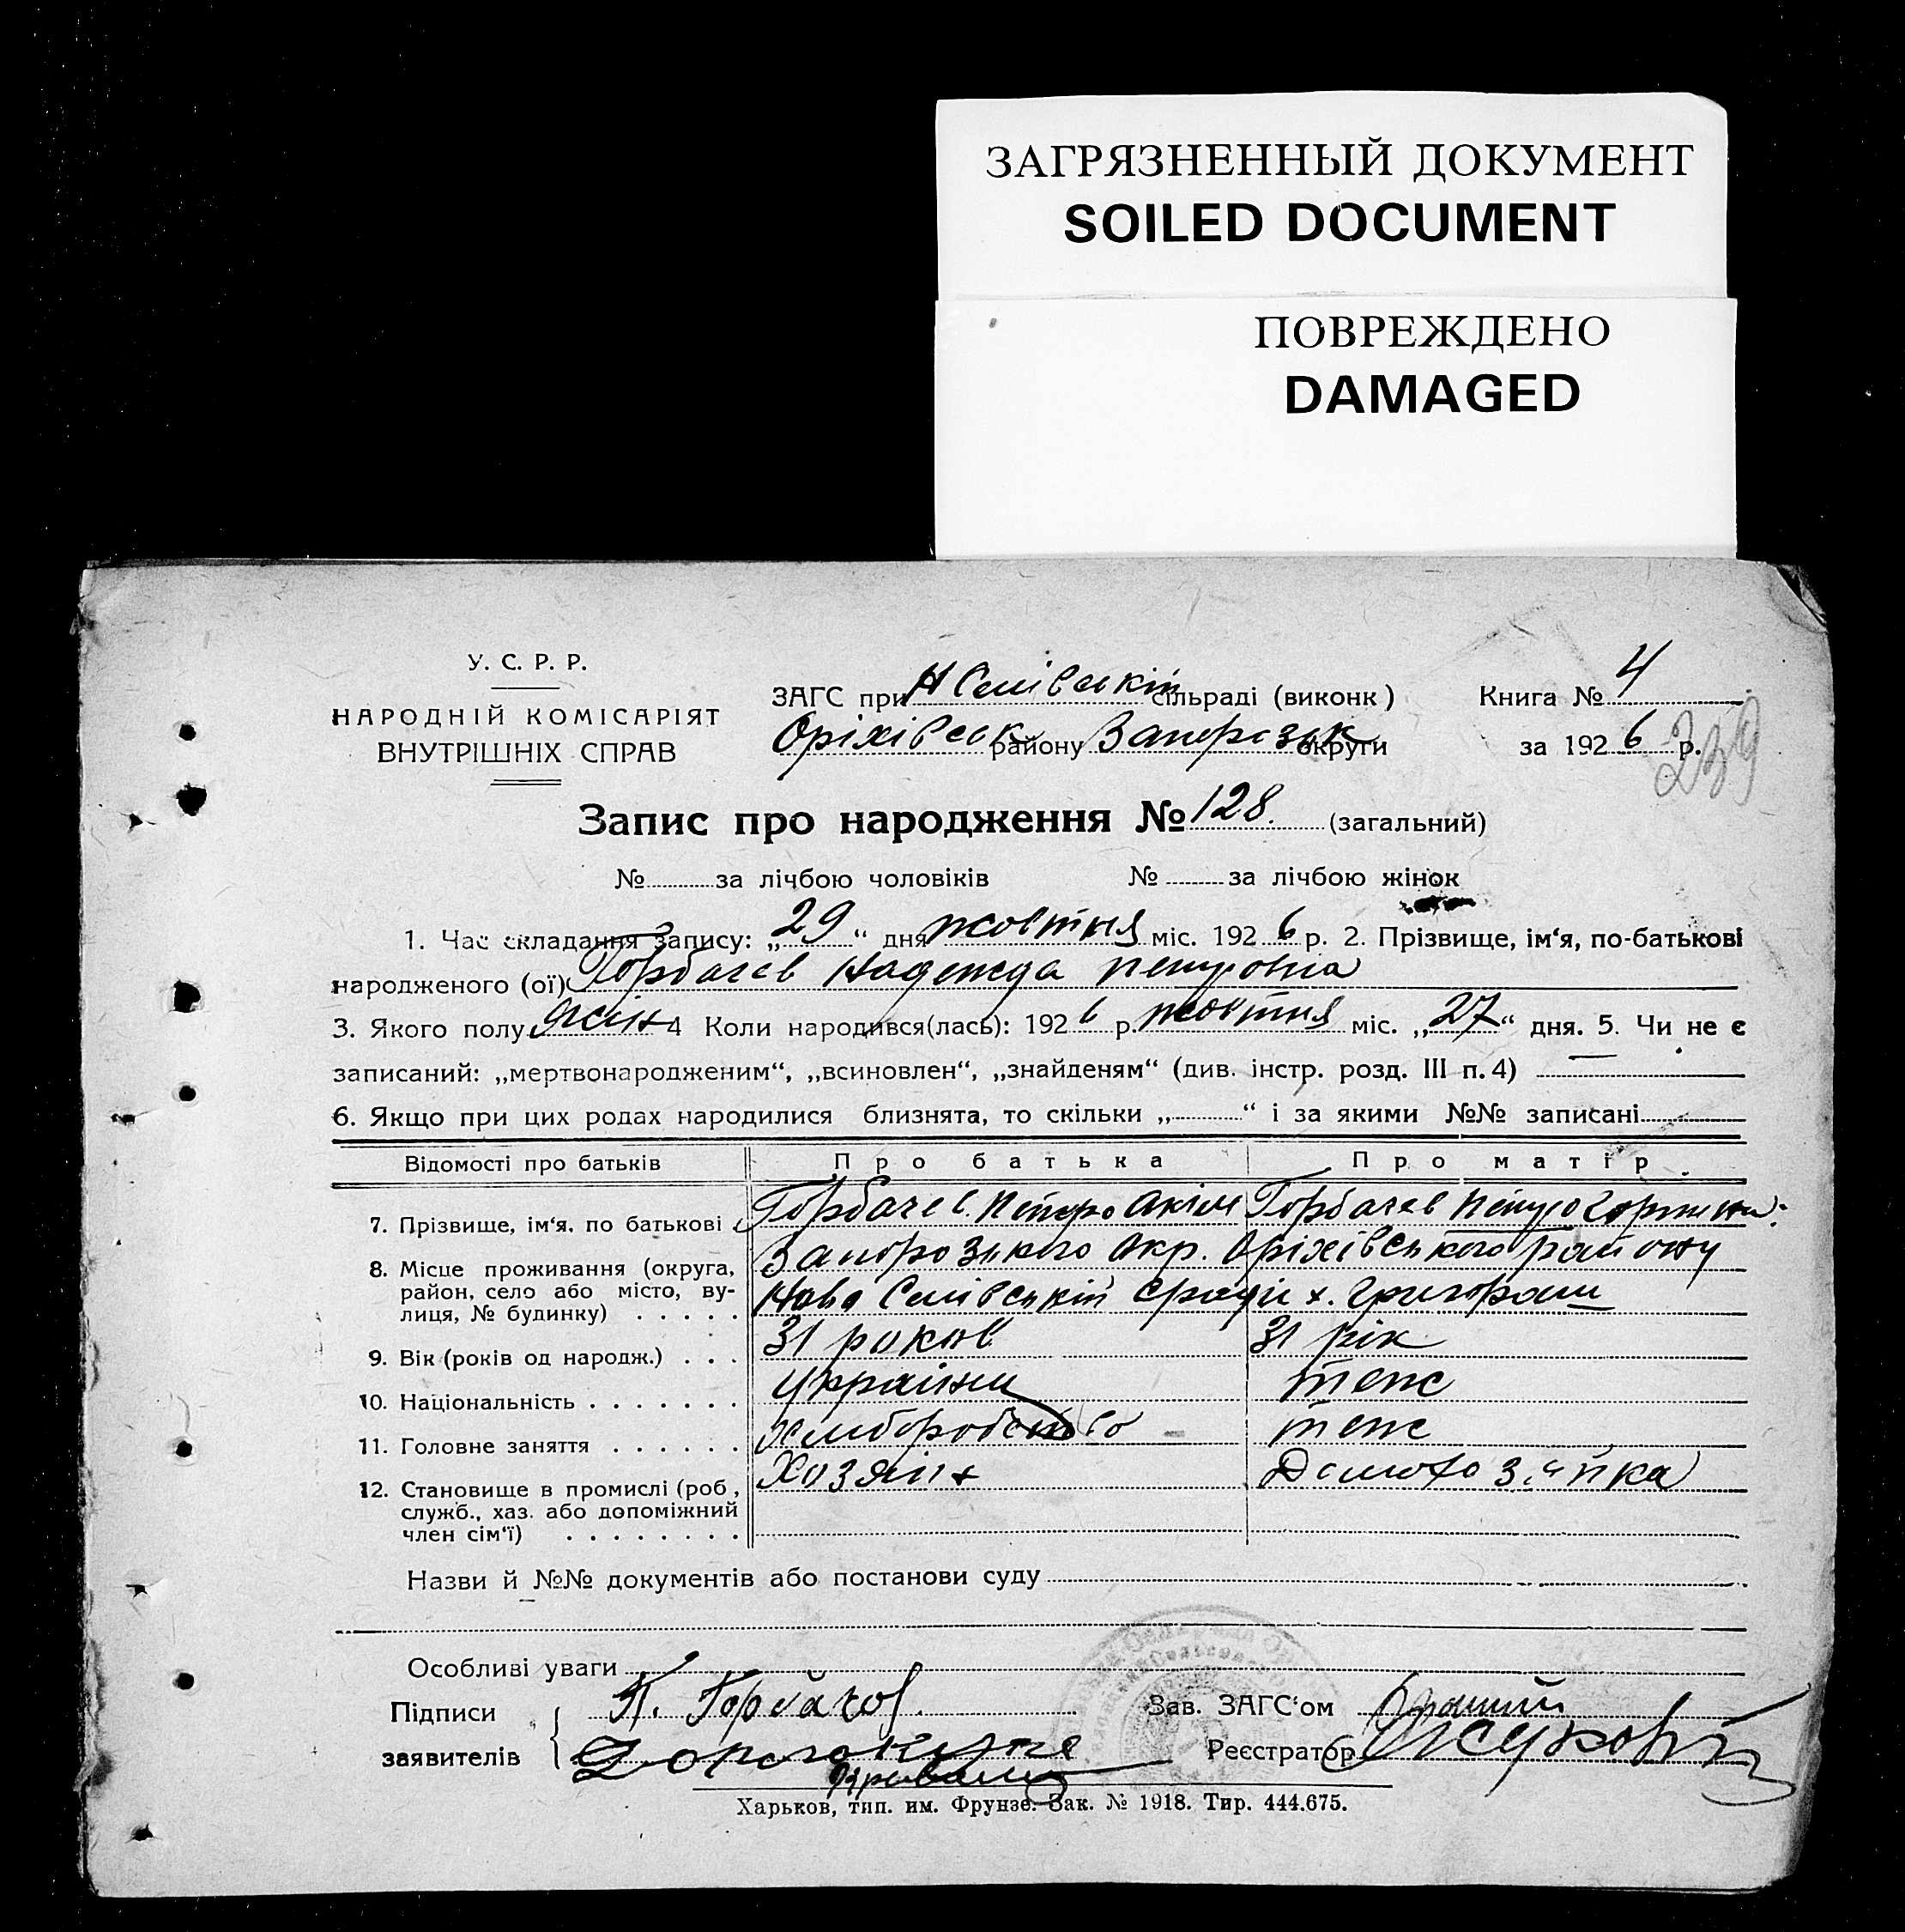 ЗАГРЯЗНЕННЫЙ ДОКУМЕНТ
SOILED DOCUMENT
ПОВРЕЖДЕНО
DAMAGED
У. С. Р. Р.
НАРОДНІЙ КОМІСАРІЯТ
ВНУТРІШНІХ СПРАВ
ЗАГС при Н Селівській сільраді (виконк)
Оріхівськ району Запорозьк округи
Книга № 4
за 1926 р.
239
Запис про народження № 128. (загальний)
№ за лічбою чоловіків № за лічбою жінок
1. Час складання запису: „29“ дня жовтня міс. 1926 р. 2. Прізвище, ім‘я, по-батькові
народженого (ої) Горбачев Надежда Петровна
3. Якого полу жін 4 Коли народився(лась): 1926 р. жовтня міс. „27“ дня. 5. Чи не є
записаний: „мертвонародженим“, „всиновлен“, „знайденям“ (див. інстр. розд. III п. 4) —
6. Якщо при цих родах народилися близнята, то скільки „ “ і за якими №№ записані
Відомості про батьків Про батька Про матір
7. Прізвище, ім‘я, по батькові Горбачев Петро Акім Горбачев
8. Місце проживання (округа, район, село або місто, вулиця, № будинку) Запорозького Окр. Оріхівського району
Ново Селівській сради х. Григораш
9. Вік (років од народж.) 31 роков 31 рік
10. Національність українц теж
11. Головне заняття хлиборобство теж
12. Становище в промислі (роб, служб., хаз. або допоміжний член сім‘ї) Хозяін Домохозяйка
Назви й №№ документів або постанови суду
Особливі уваги
Підписи
заявителів
П. Горбачов
Зав. ЗАГС‘ом
Реєстратор
Харьков, тип. им. Фрунзе. Зак. № 1918. Тир. 444.675.